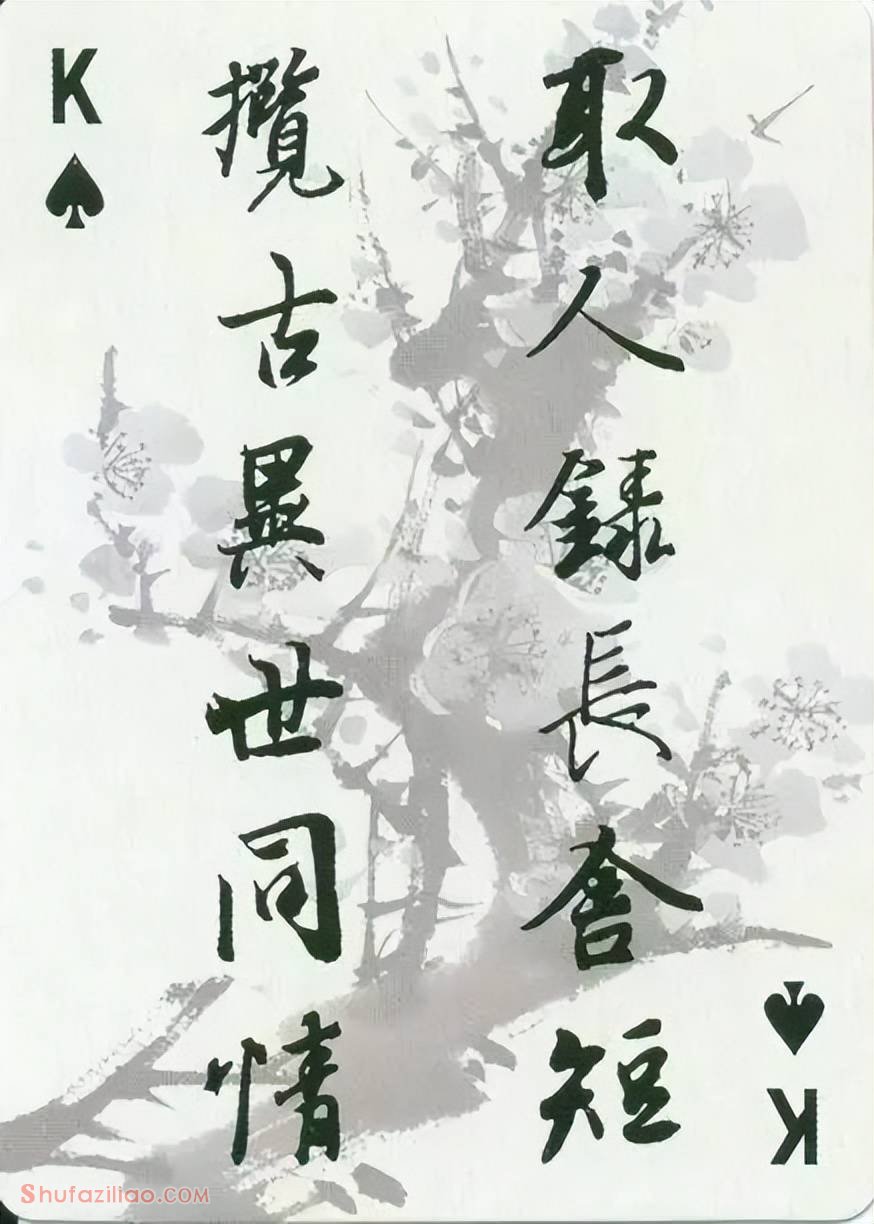 K
取人錄長舍短
攬古異世同情
K
Shufaziliao.com